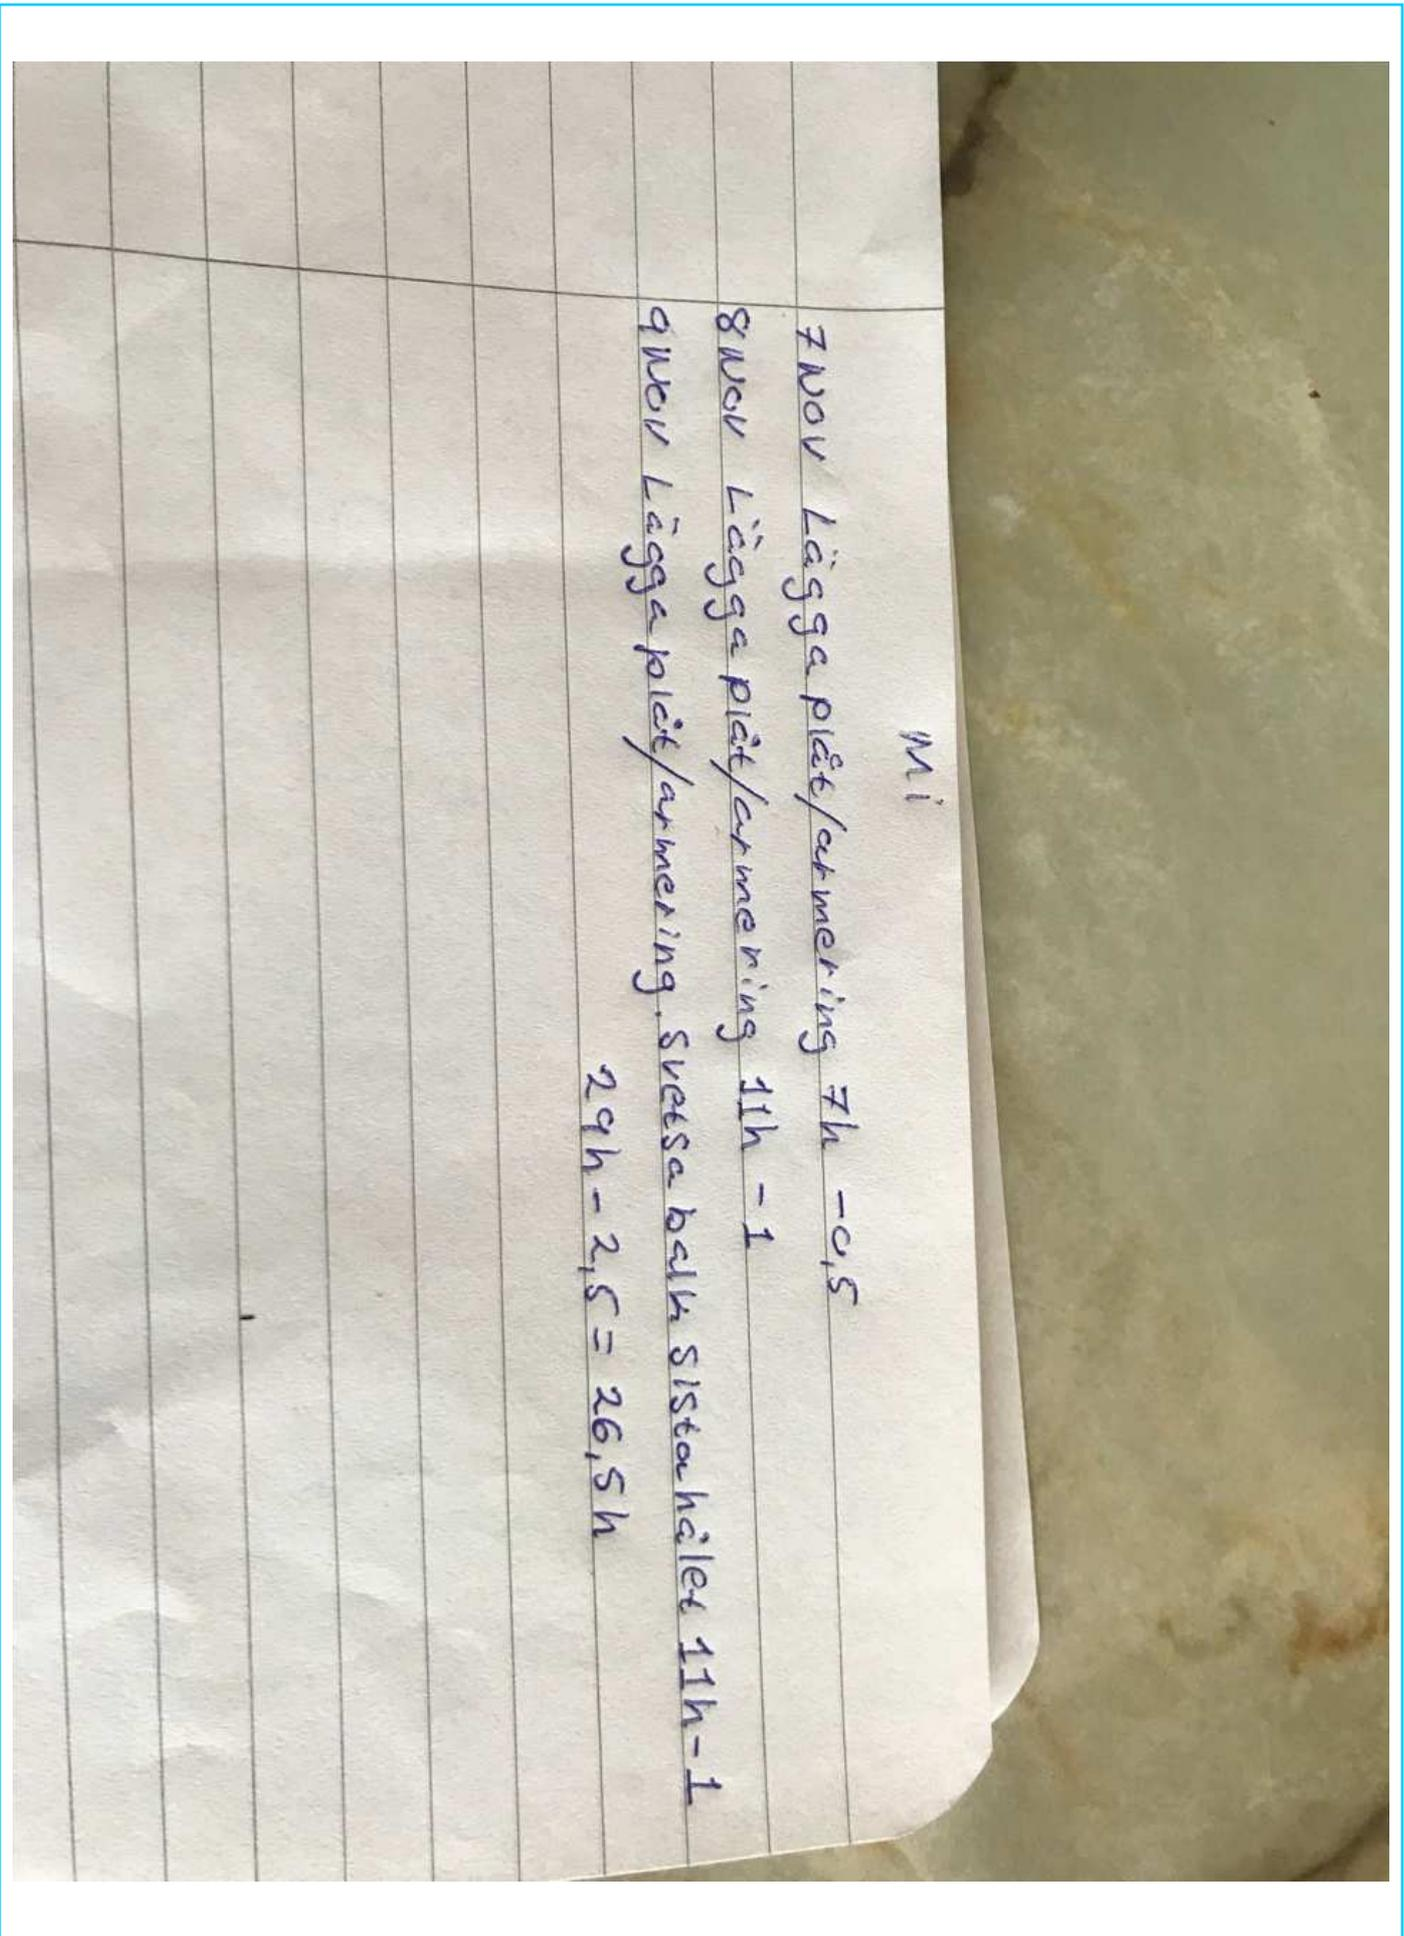 Mi
7 Nov Lägga plåt/armering 7h -0,5
8 Nov Lägga plåt/armering 11h -1
9 Nov Lägga plåt/armering. Svetsa balk sista hålet 11h-1
29h-2,5=26,5h